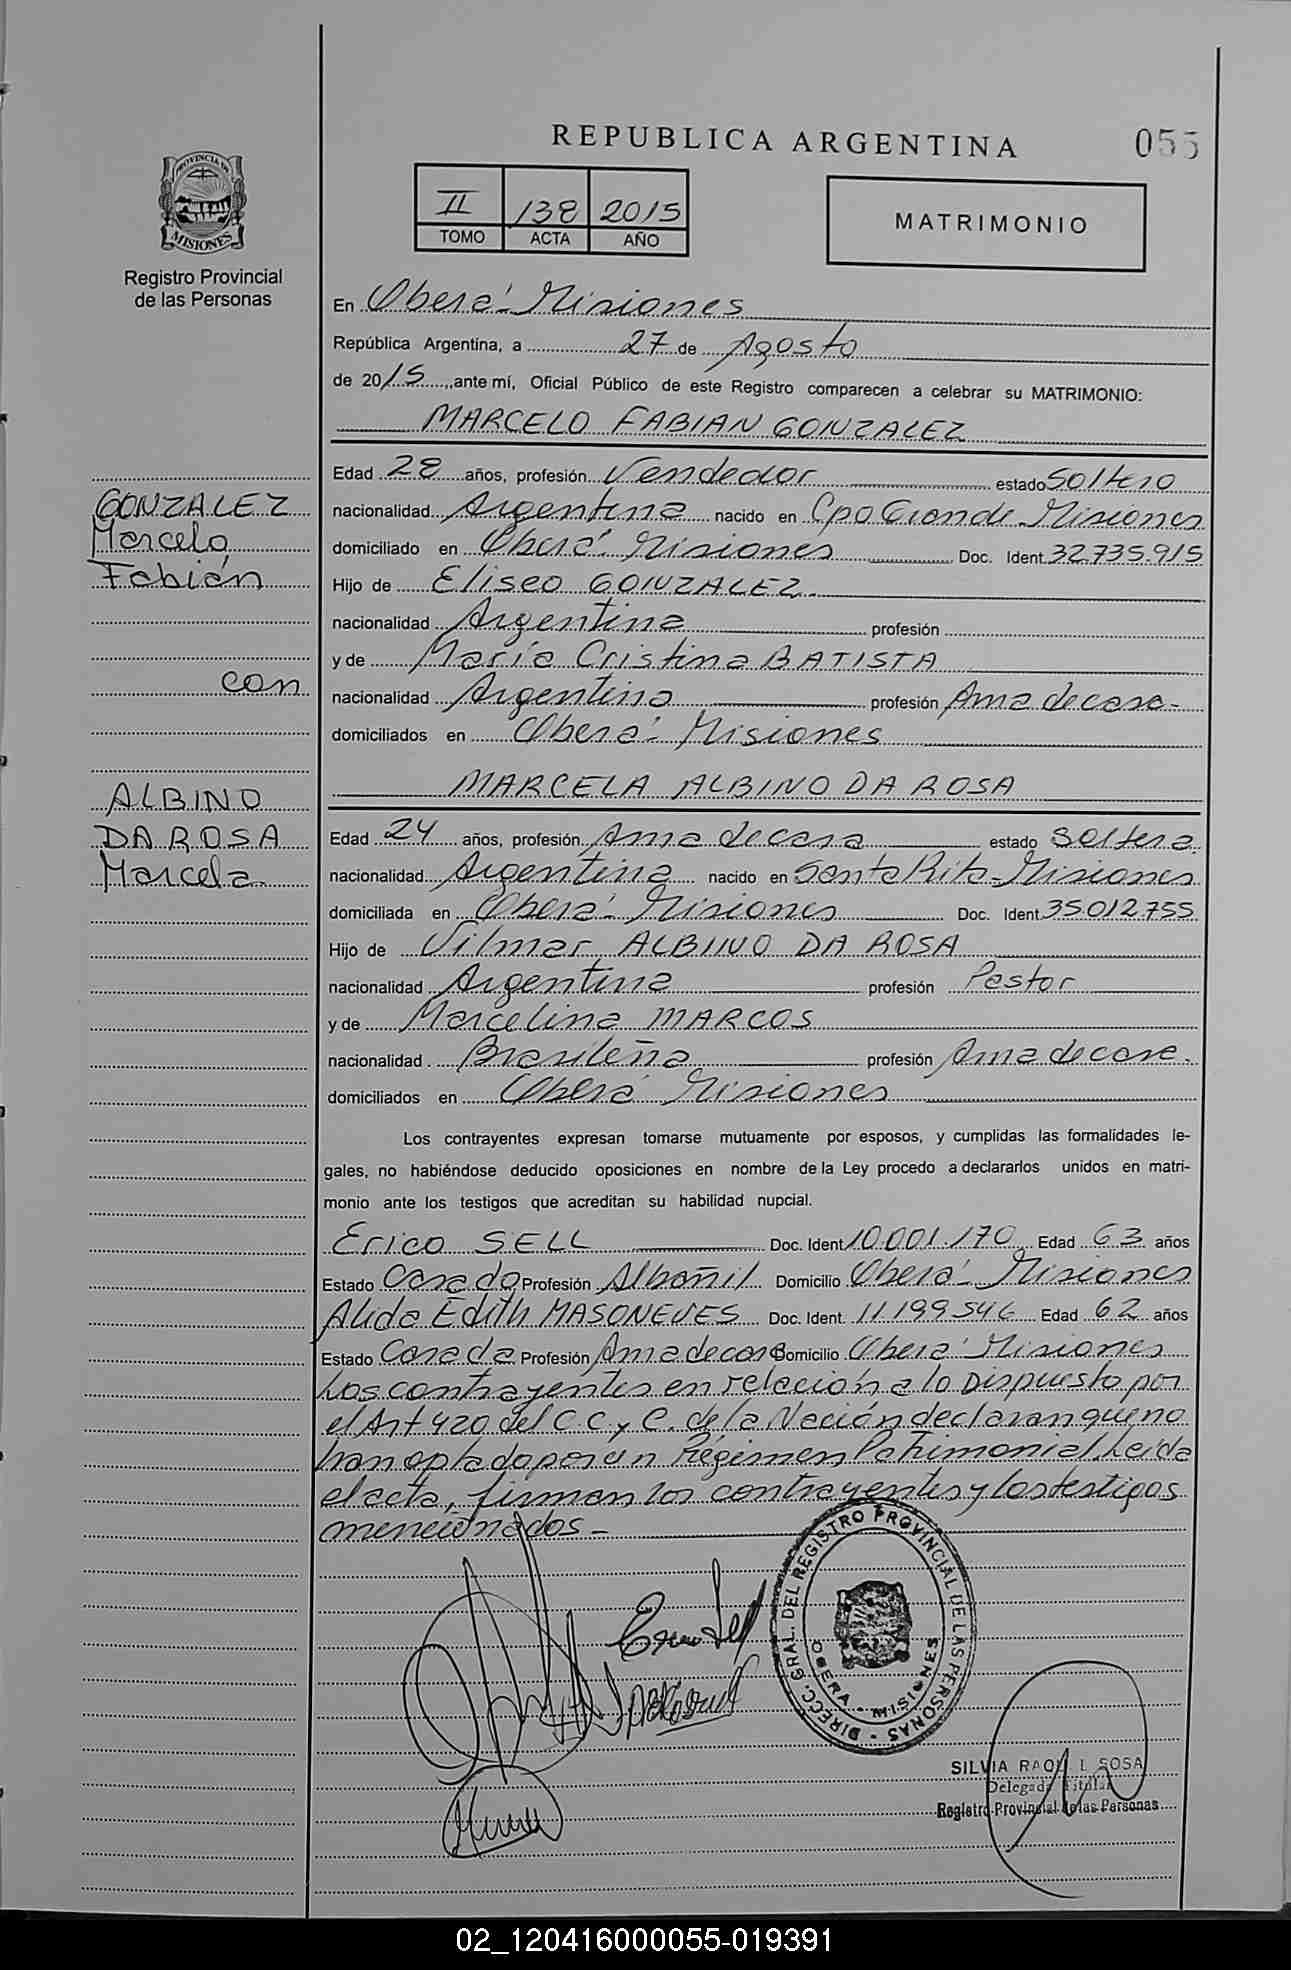 REPUBLICA ARGENTINA 055
PROVINCIA DE
MISIONES
Registro Provincial
de las Personas
II 138 2015
TOMO ACTA AÑO
MATRIMONIO
En Oberá - Misiones
República Argentina, a 27 de Agosto
de 2015, ante mí, Oficial Público de este Registro comparecen a celebrar su MATRIMONIO:
MARCELO FABIAN GONZALEZ
GONZALEZ
Marcelo
Fabián
con
ALBINO
DA ROSA
Marcela
Edad 28 años, profesión Vendedor estado Soltero
nacionalidad Argentina nacido en Cpo Grande Misiones
domiciliado en Oberá - Misiones Doc. Ident. 32.735.915
Hijo de Eliseo GONZALEZ
nacionalidad Argentina profesión
y de María Cristina BATISTA
nacionalidad Argentina profesión Ama de casa
domiciliados en Oberá - Misiones
MARCELA ALBINO DA ROSA
Edad 24 años, profesión Ama de casa estado Soltera
nacionalidad Argentina nacido en Santa Rita - Misiones
domiciliada en Oberá - Misiones Doc. Ident. 35.012.755
Hijo de Vilmar ALBINO DA ROSA
nacionalidad Argentina profesión Pastor
y de Marcelina MARCOS
nacionalidad Brasileña profesión Ama de casa
domiciliados en Oberá Misiones
Los contrayentes expresan tomarse mutuamente por esposos, y cumplidas las formalidades le-
gales, no habiéndose deducido oposiciones en nombre de la Ley procedo a declararlos unidos en matri-
monio ante los testigos que acreditan su habilidad nupcial.
Erico SELL Doc. Ident. 10.001.170 Edad 63 años
Estado Casado Profesión Albañil Domicilio Oberá - Misiones
Alida Edith MASONEVES Doc. Ident. 11.199.546 Edad 62 años
Estado Casada Profesión Ama de casa Domicilio Oberá - Misiones
Los contrayentes en relación a lo Dispuesto por
el Art 420 del C.C. y C. de la Nación declaran que no
han optado por un Régimen Patrimonial. Leída
el acta, firman los contrayentes y los testigos
mencionados -
DIRECC. GRAL. DEL REGISTRO PROVINCIAL DE LAS PERSONAS
OBERA - MISIONES
SILVIA RAQUEL SOSA
Delegada Titular
Registro Provincial de las Personas
02_120416000055-019391